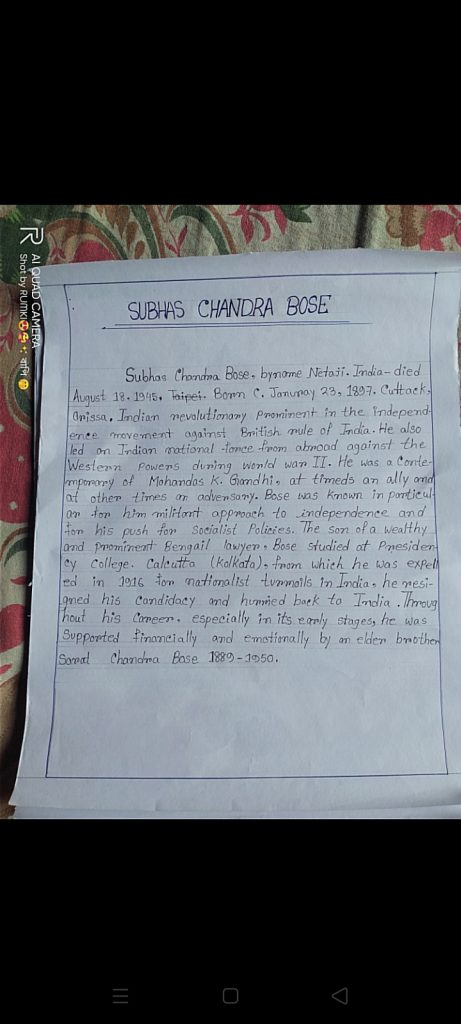 SUBHAS CHANDRA BOSE
Subhas Chandra Bose, byname Netaji. India- died
August 18. 1945. Taipei. Born C. Janunay 23, 1897. Cuttack,
Orissa. Indian revolutionary prominent in the independ-
ence movement against British rule of India. He also
led an Indian national force from abroad against the
Western Powers during world war II. He was a Conte-
mporary of Mohandas K. Gandhi, at timeds an ally and
at other times an adversary. Bose was known in particul-
ar for him militant approach to independence and
for his push for Socialist Policies. The son of a wealthy
and prominent Bengail lawyer, Bose studied at Presiden-
cy College. Calcutta (Kolkata), from which he was expell
ed in 1916 for nationalist turmoils in India, he resi-
gned his candidacy and hurried back to India. Throug
hout his Career, especially in its early stages, he was
Supported financially and emotionally by an elder brother
Sarat Chandra Bose 1889-1950.
AI QUAD CAMERA
Shot by RUMKI